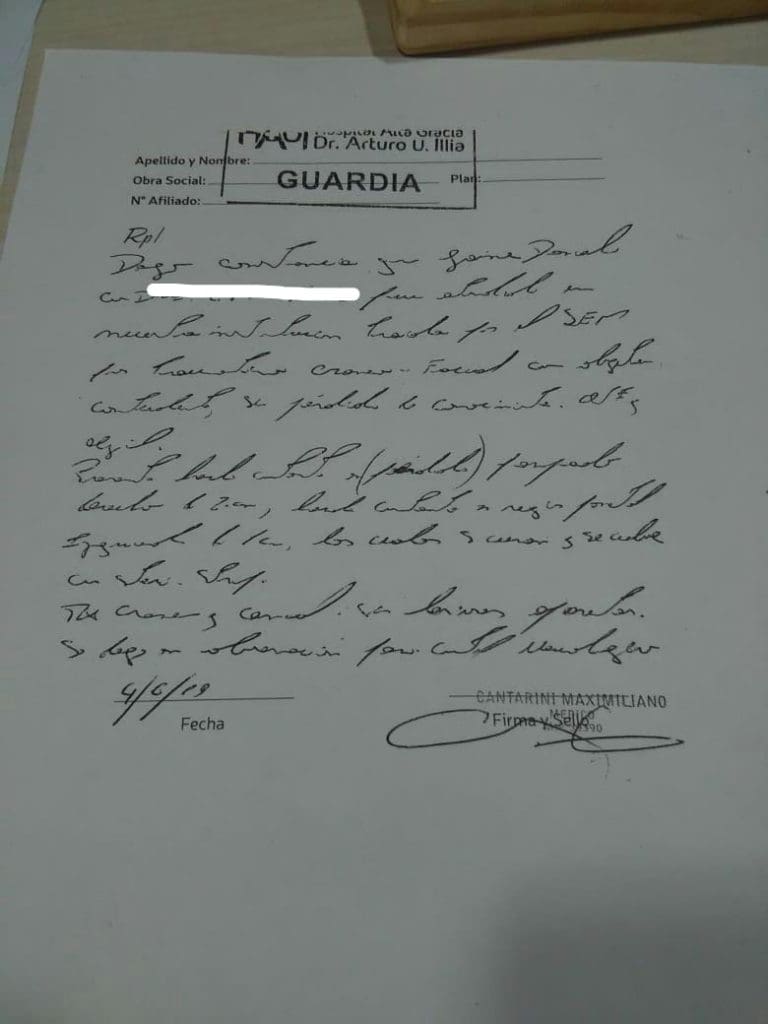 Hospital Alta Gracia
Dr. Arturo U. Illia
Apellido y Nombre:
Obra Social: GUARDIA Plan:
N° Afiliado:
Rp/
Dejo constancia que
con D fue atendido en
nuestra institucion traido por el SEM
por traumatismo craneo-Facial con objeto
contundente, sin pérdida de conocimiento.
Presenta herida cortante en (párpado) parpado
derecho de 2 cm, herida cortante en region frontal
Izquierda de 1 cm, los cuales se curan y se
con
TAC craneo y cervical sin lesiones
Se deja en observacion para control Neurologico
4/6/19
Fecha
CANTARINI MAXIMILIANO
MEDICO
Firma y Sello